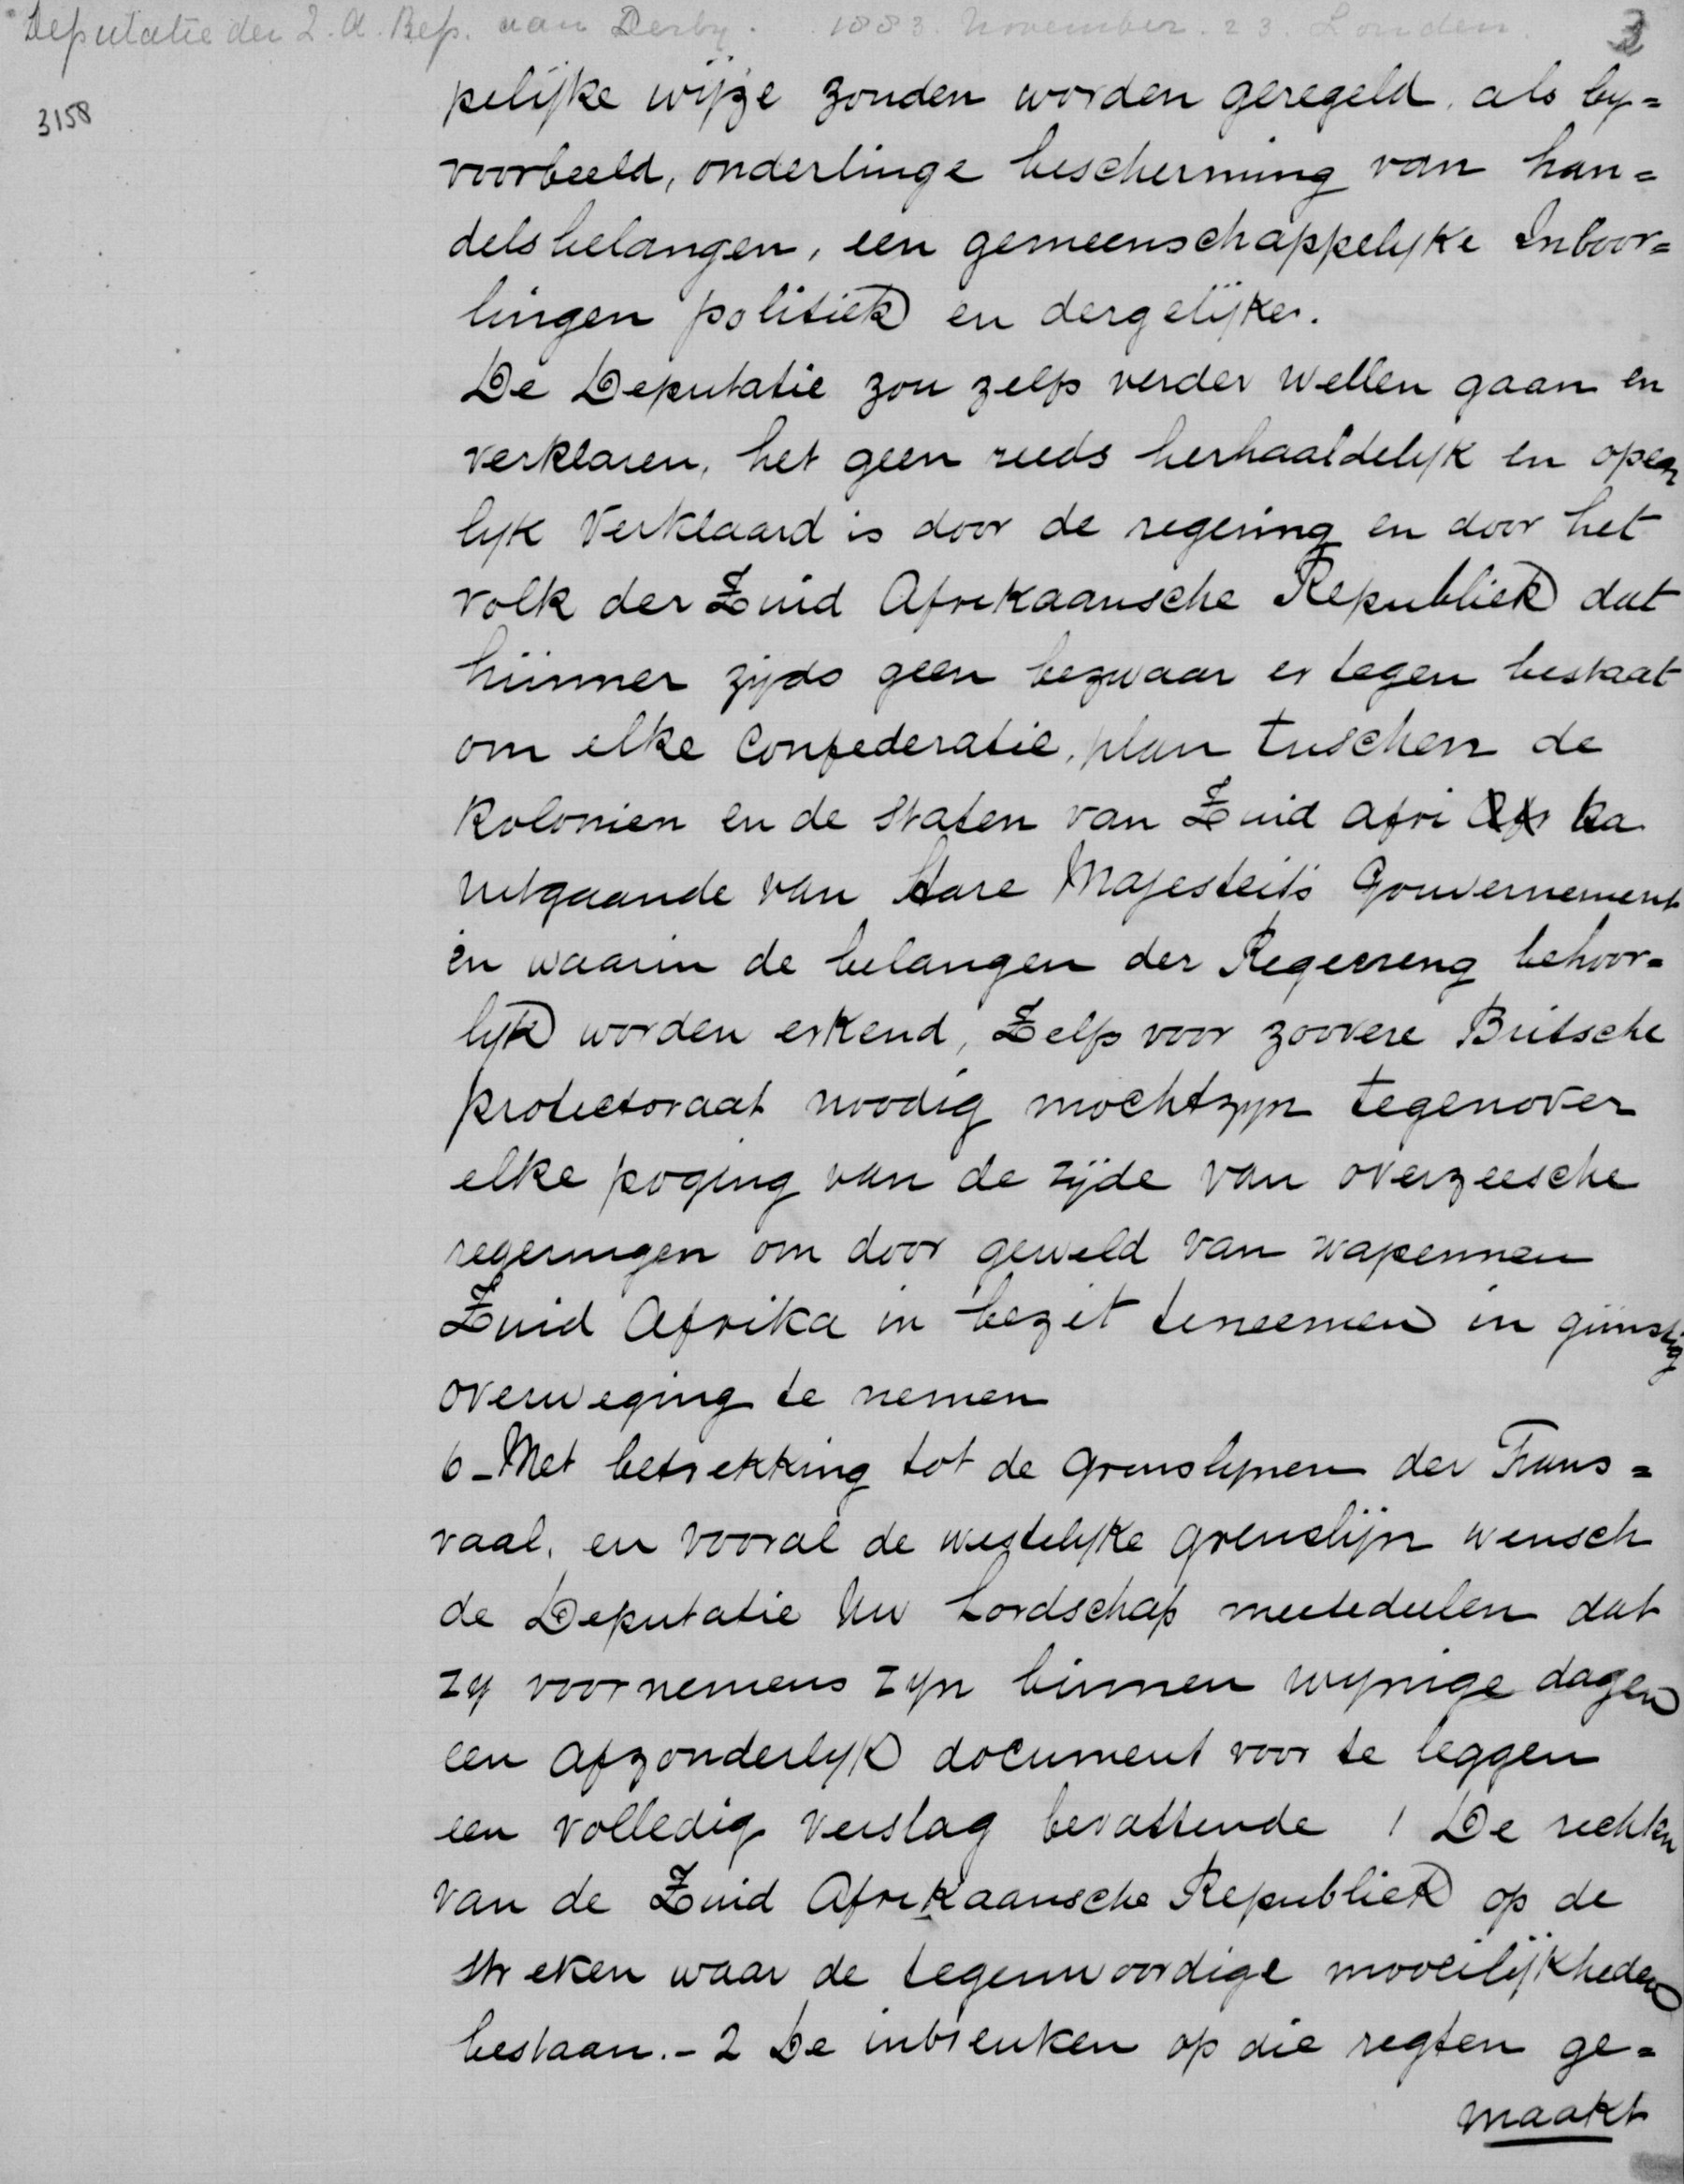 Deputatie der Z. A. Rep. aan Derby. 1883. November. 23. Londen. 3
3158
pelijke wijze zouden worden geregeld, als by=
voorbeeld, onderlinge bescherming van han=
delsbelangen, een gemeenschappelyke Inboor=
lingen politiek en dergelijker.
De Deputatie zou zelfs verder wellen gaan en
verklaren, het geen reeds herhaaldelyk en open
lyk Verklaard is door de regering en door het
volk der Zuid Afrikaansche Republiek dat
hunner zyds geen bezwaar er tegen bestaat
om elke Confederatie, plan tuschen de
Kolonien en de Staten van Zuid Afri ka
uitgaande van Hare Majesteits Gouvernement
en waarin de belangen der Regeereng behoor=
lyk worden erkend, Zelfs voor zoovere Britsche
protectoraat noodig mocht zyn tegenover
elke poging van de zijde van overzeesche
regeringen om door geweld van wapennen
Zuid Afrika in bezit teneemen in gunstig
overweging te nemen
6 - Met betrekking tot de grenslynen der Trans=
vaal, en vooral de westelyke grenslijn wensch
de Deputatie Uw Lordschap meetedeelen dat
zy voornemens zyn binnen wynige dagen
een afzonderlyk document voor te leggen
een volledig verslag bevattende 1 De rechten
van de Zuid Afrikaansche Republiek op de
streken waar de tegenwoordige mooeilijkheden
bestaan. - 2 De inbreuken op die regten ge=
maakt